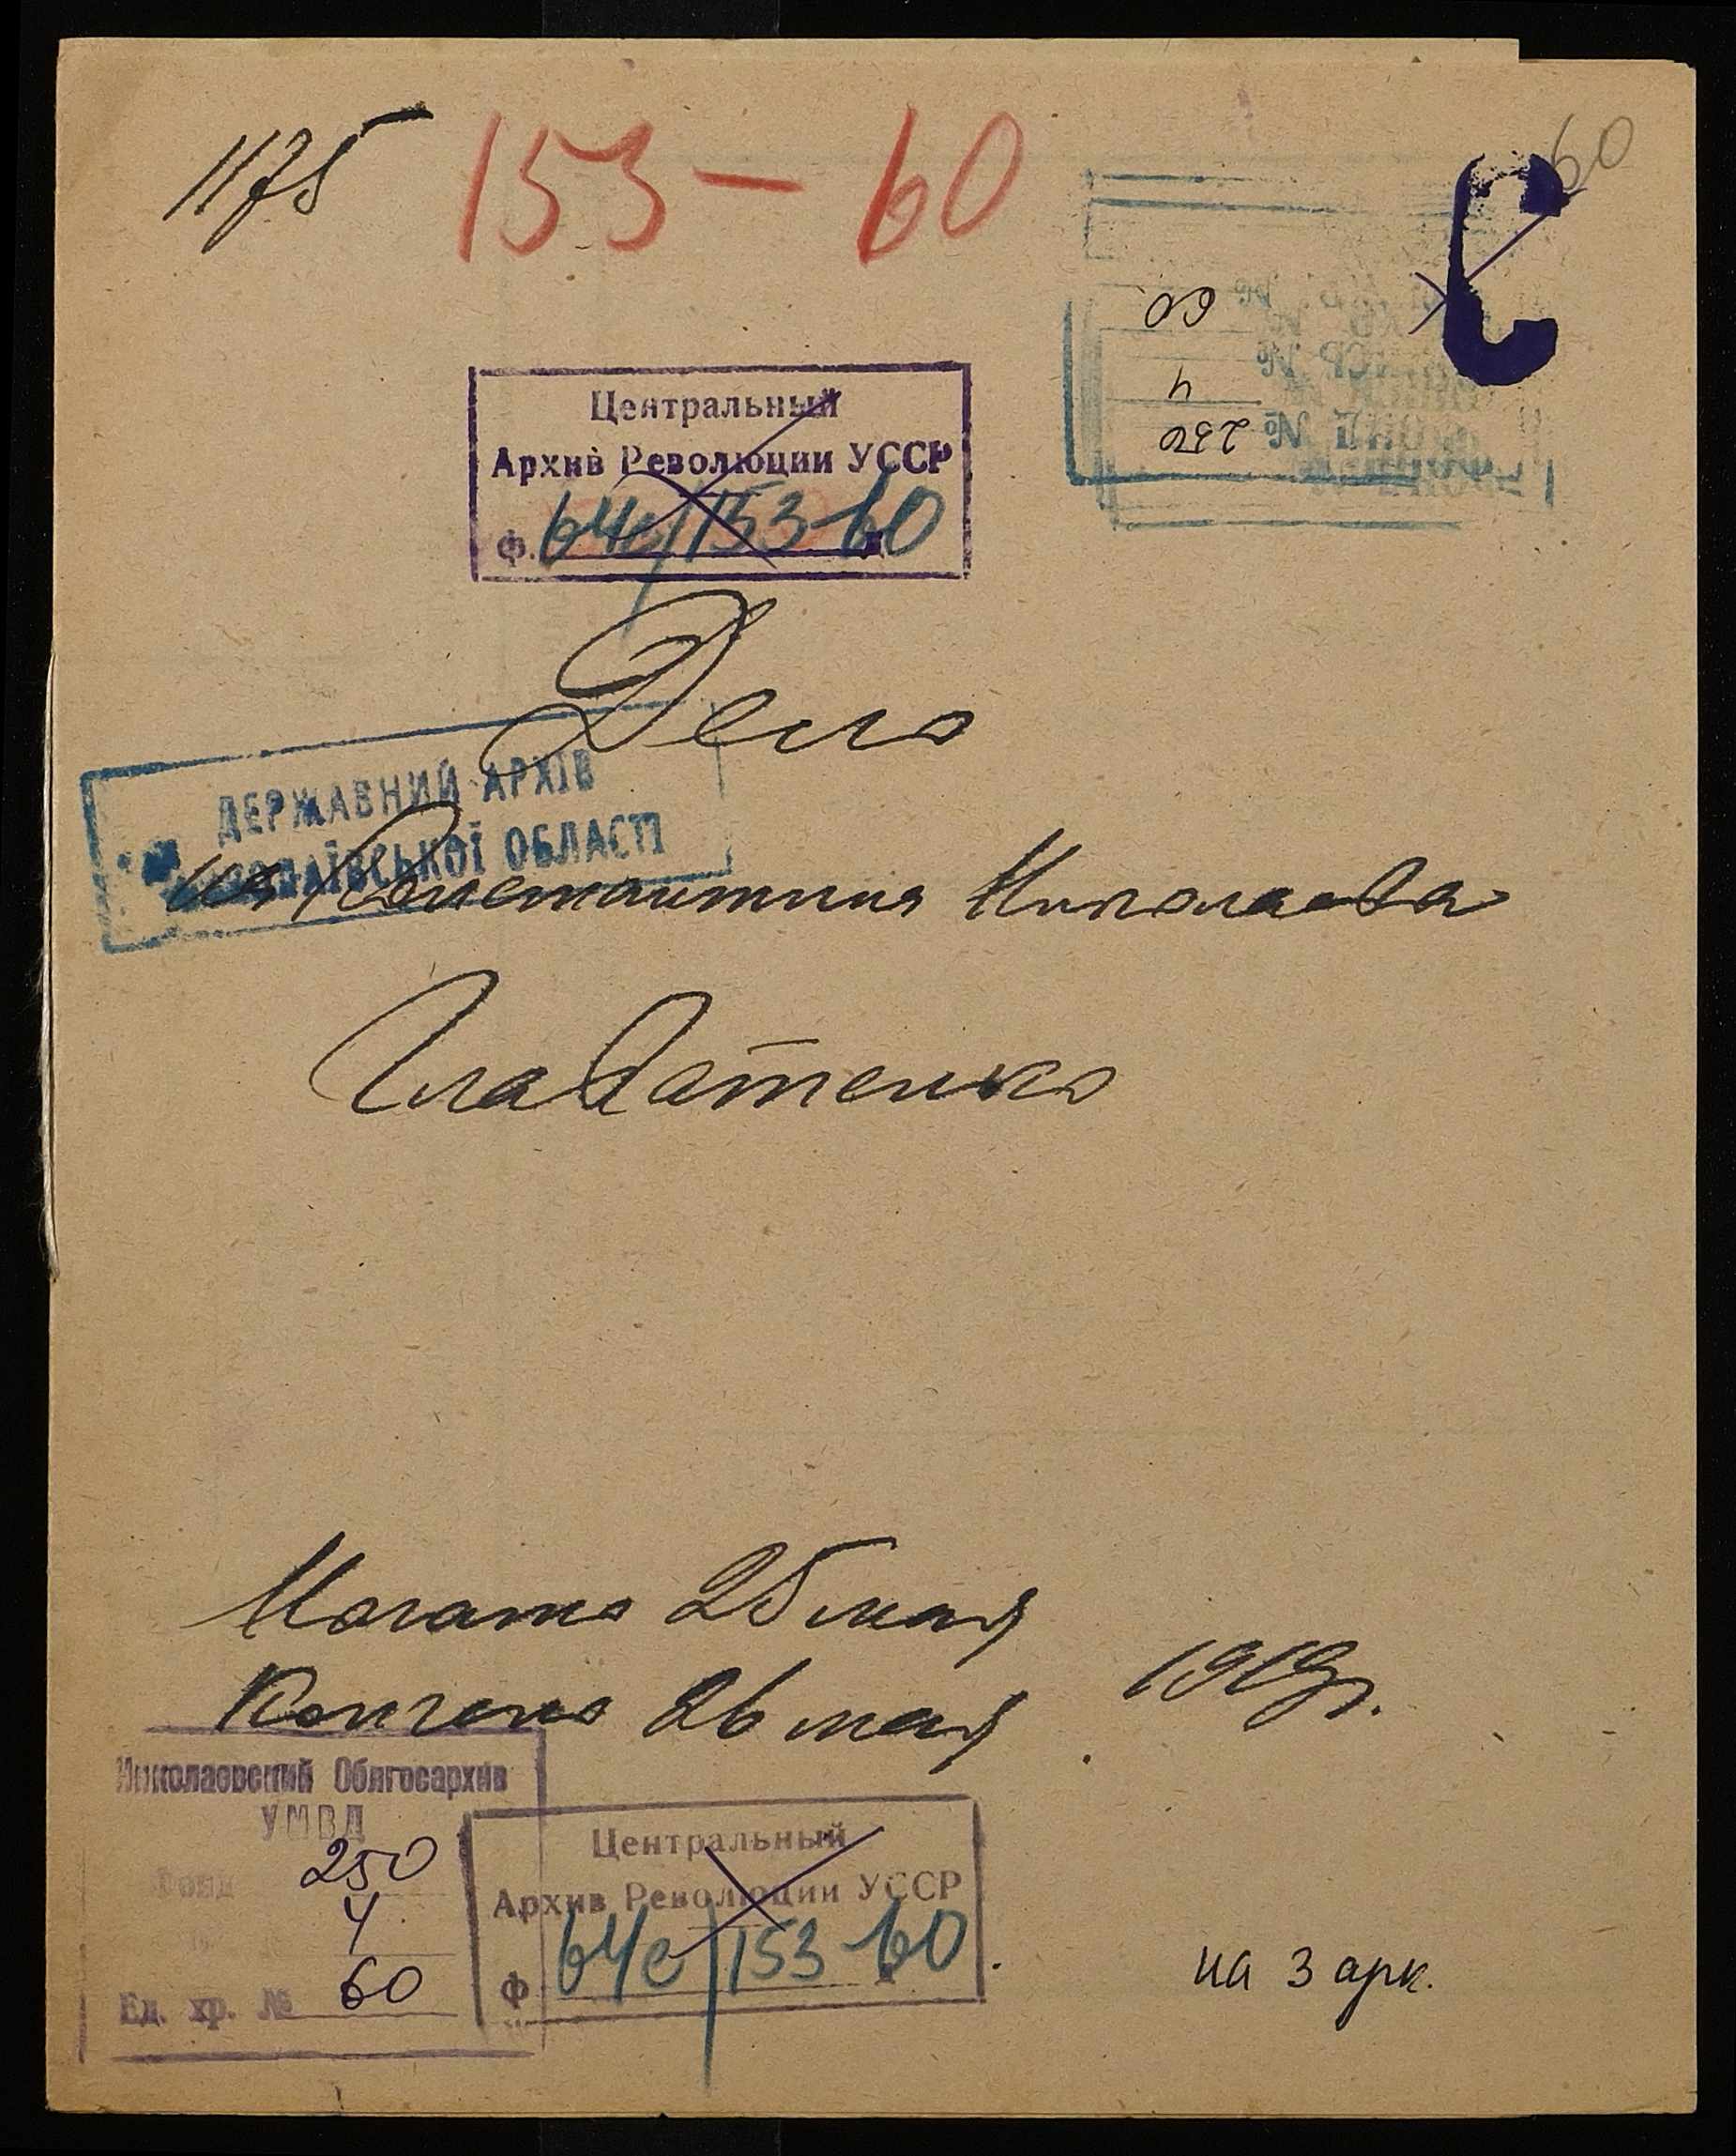 1175
153-60
60
60
4
Фонд № 230
Центральный
Архив Революции УССР
ф. 64с/153-60
Дело
ДЕРЖАВНИЙ АРХІВ
МИКОЛАЇВСЬКОЇ ОБЛАСТІ
Константина Николаева
Начато 25 мая
1919г.
Кончено 26 мая
Николаевский Облгосархив
УМВД
Фонд 250
4
Ед. хр. № 60
Центральный
Архив Революции УССР
ф 64с/153-60
на 3 арк.